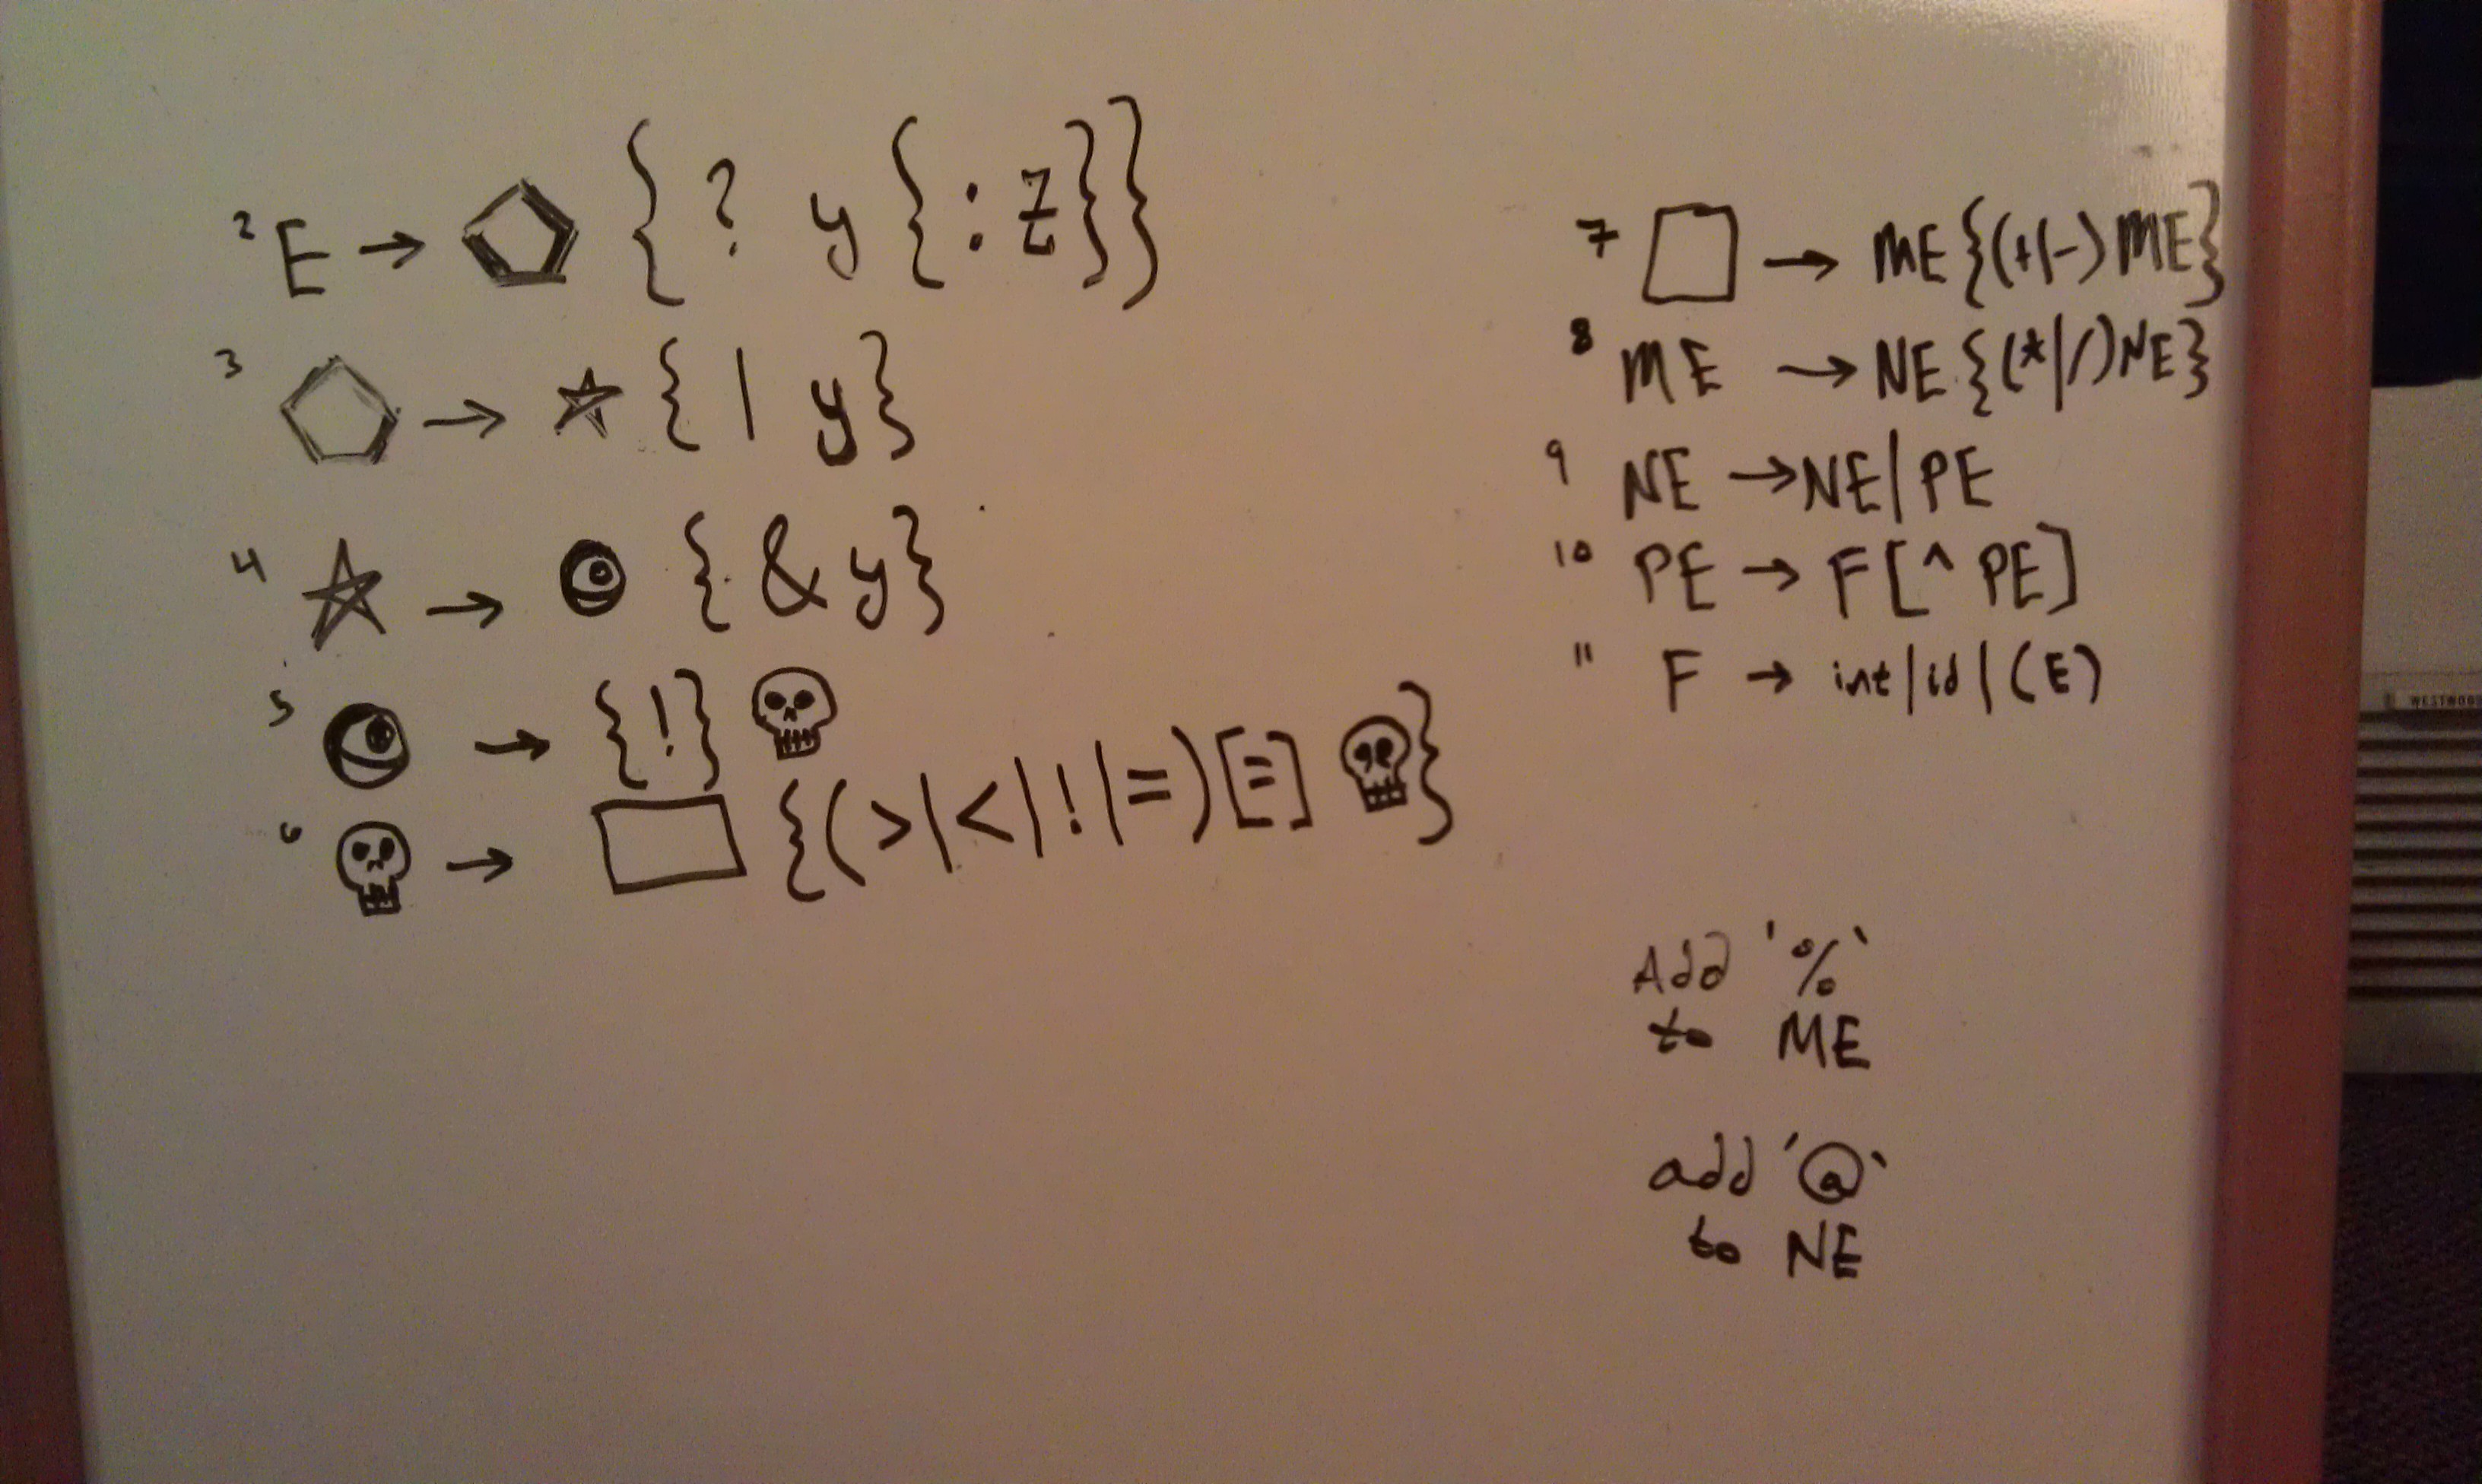 2 E → ⬠ { ? y { : z } }
3 ⬠ → ☆ { | y }
4 ☆ → 👁 { & y }
5 👁 → { ! } 💀
6 💀 → ▭ { ( > | < | ! | = ) [ = ] 💀 }
7 □ → ME { (+|-) ME }
8 ME → NE { (*|/) NE }
9 NE → NE | PE
10 PE → F [ ^ PE ]
11 F → int | id | (E)
Add '%`
to ME
add '@`
to NE
WESTWOOD